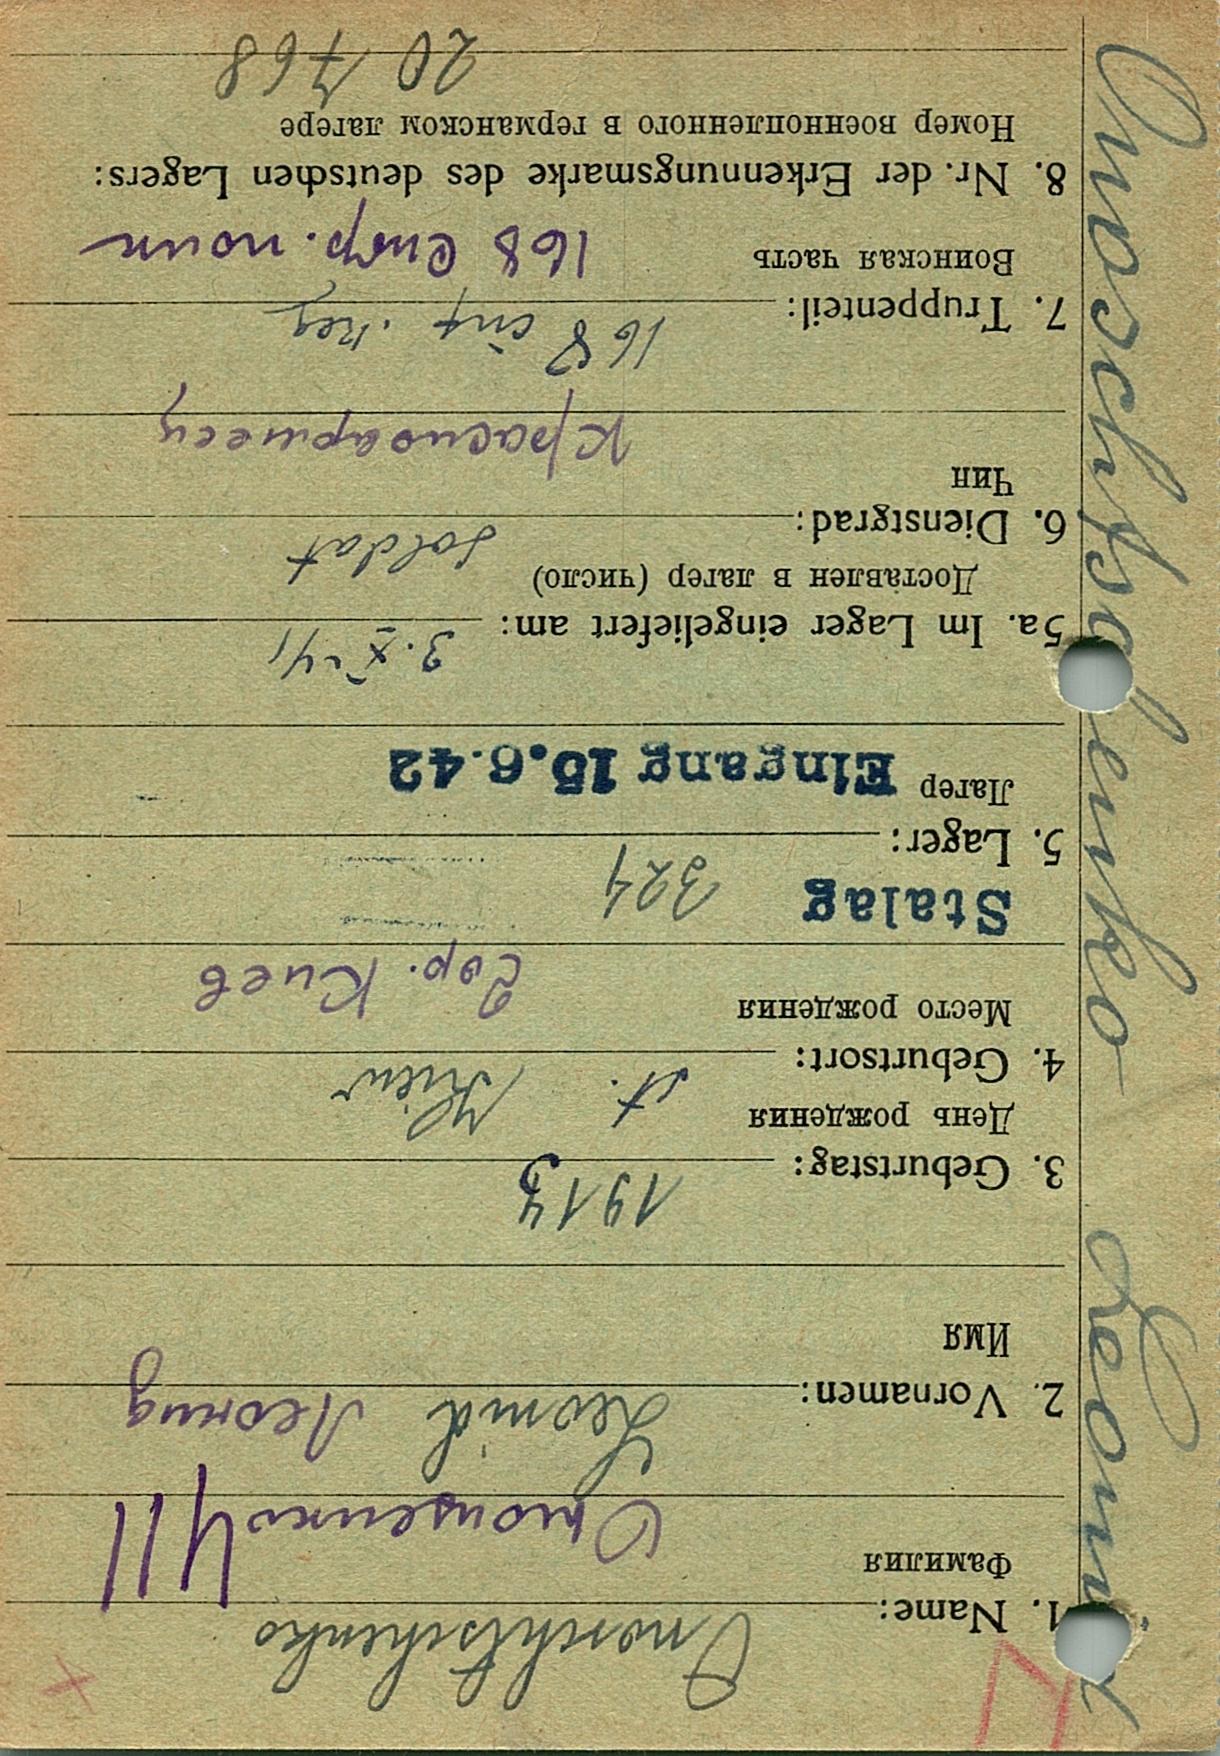 Onoschtschenko Leonid
1. Name: Onoschtschenko
Фамилия Онощенко 411
2. Vornamen: Leonid Леонид
Имя
3. Geburtstag: 1913
День рождения
4. Geburtsort: St. Kiew
Место рождения гор. Киев
Stalag 324
5. Lager:
Лагер Eingang 15.6.42
5a. Im Lager eingeliefert am: 3. X 41
Доставлен в лагер (число)
6. Dienstgrad: Soldat
Чин
Красноармеец
7. Truppenteil: 168 inf. Reg
Воинская часть 168 стр. полк
8. Nr. der Erkennungsmarke des deutschen Lagers:
Номер военнопленного в германском лагере
20 768